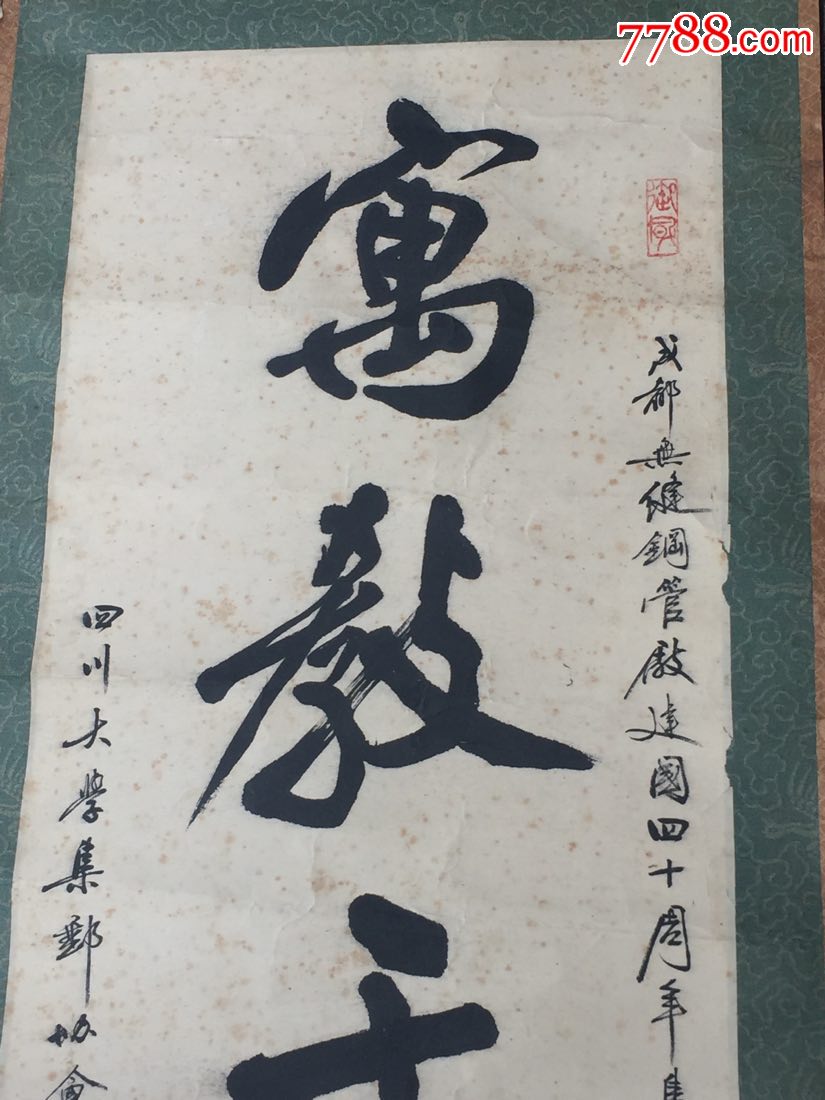 7788.com
成都無缝鋼管廠建國四十周年集
寓教于
四川大學集郵协會